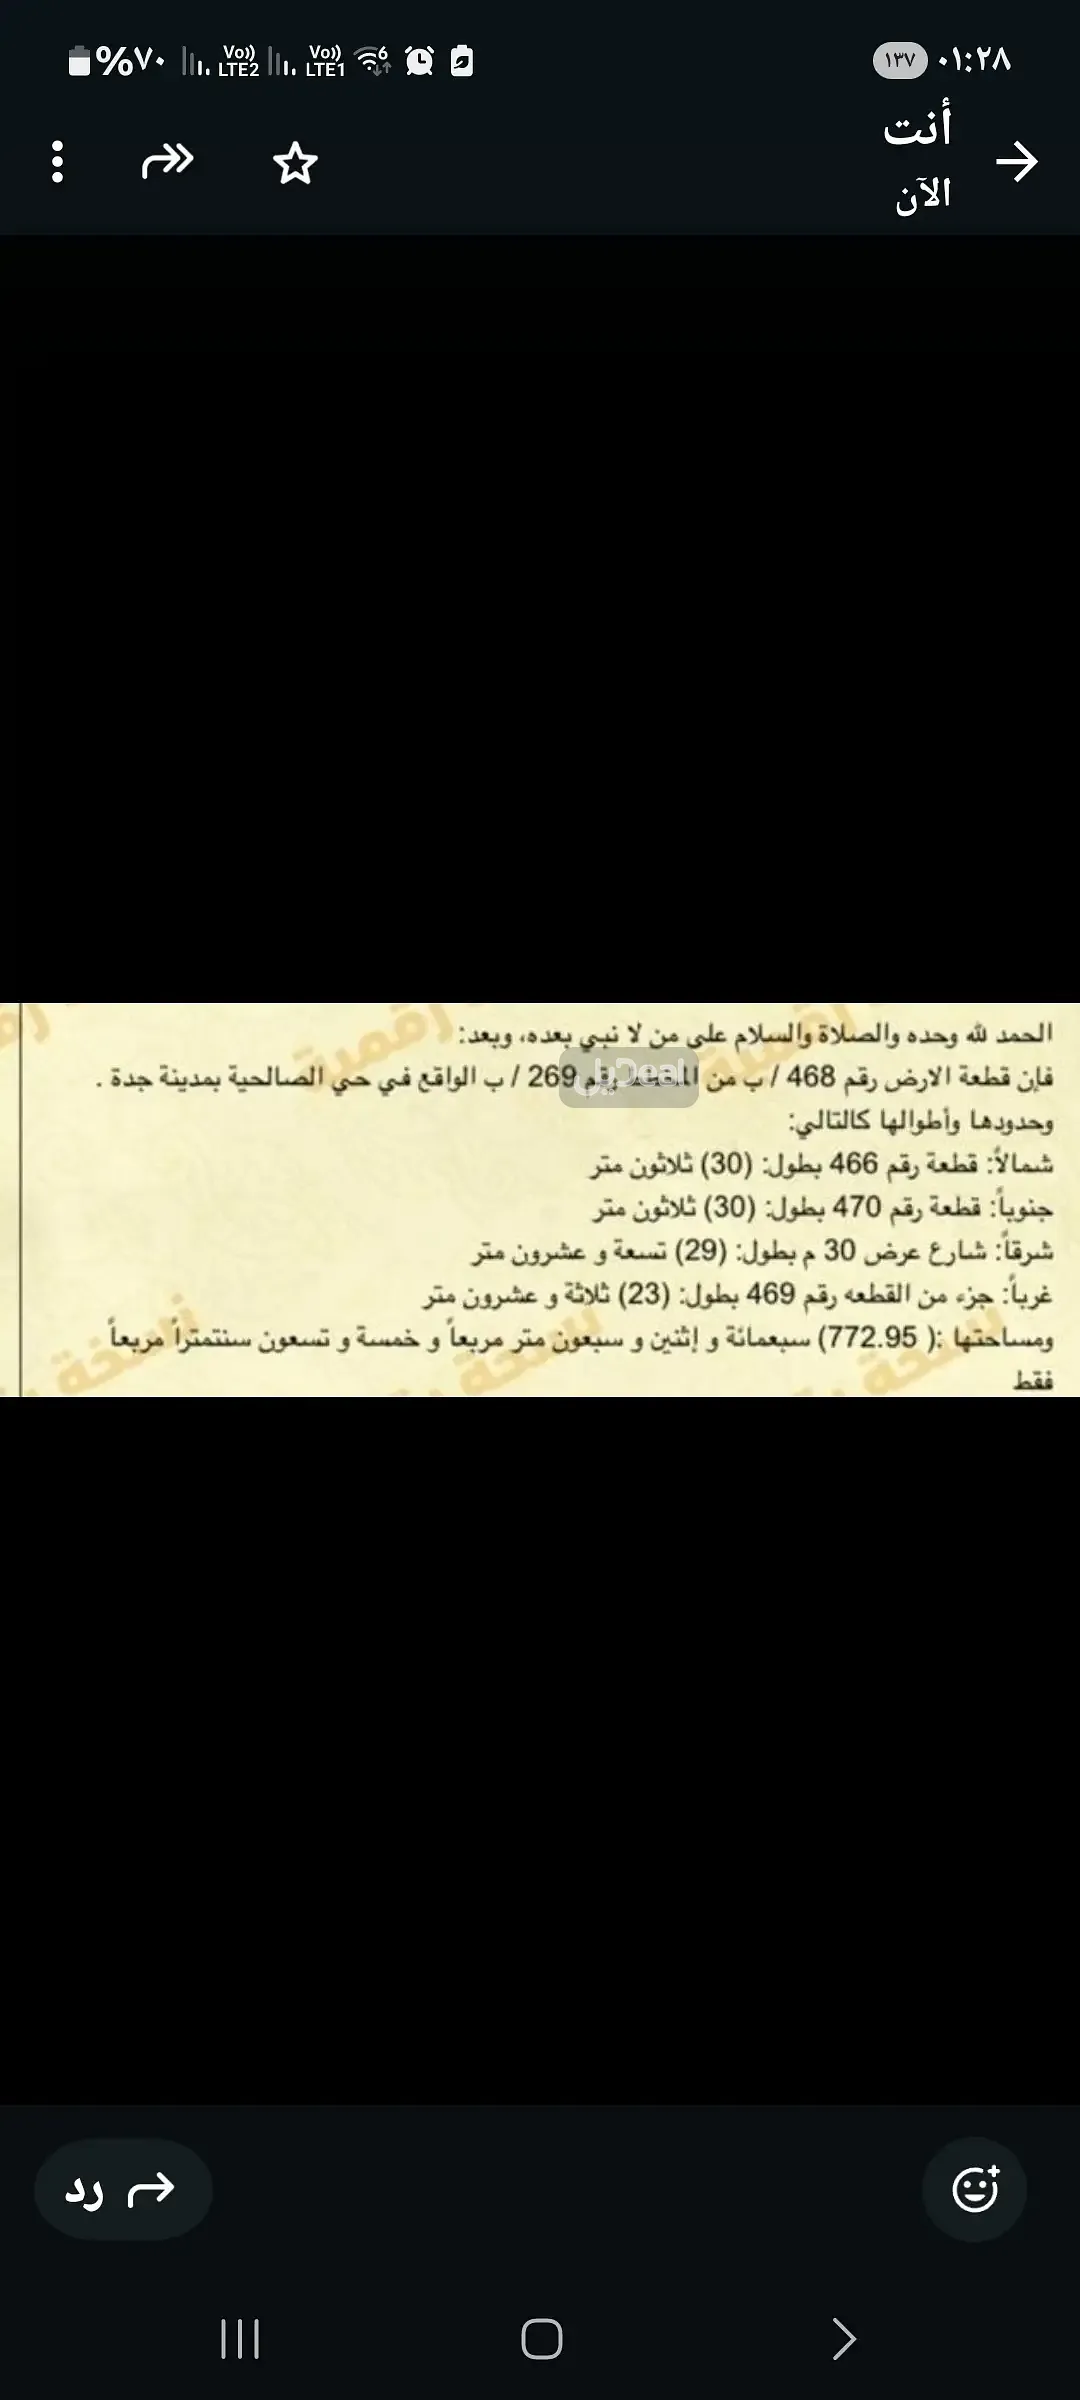 ٠١:٢٨ ١٣٧ Vo)) LTE1 Vo)) LTE2 %٧٠
أنت
الآن
الحمد لله وحده والصلاة والسلام على من لا نبي بعده، وبعد:
فإن قطعة الارض رقم 468 / ب من المخطط رقم 269 / ب الواقع في حي الصالحية بمدينة جدة .
وحدودها وأطوالها كالتالي:
شمالاً: قطعة رقم 466 بطول: (30) ثلاثون متر
جنوباً: قطعة رقم 470 بطول: (30) ثلاثون متر
شرقاً: شارع عرض 30 م بطول: (29) تسعة و عشرون متر
غرباً: جزء من القطعه رقم 469 بطول: (23) ثلاثة و عشرون متر
ومساحتها :( 772.95) سبعمائة و إثنين و سبعون متر مربعاً و خمسة و تسعون سنتمتراً مربعاً
فقط
ديل Deal
رد